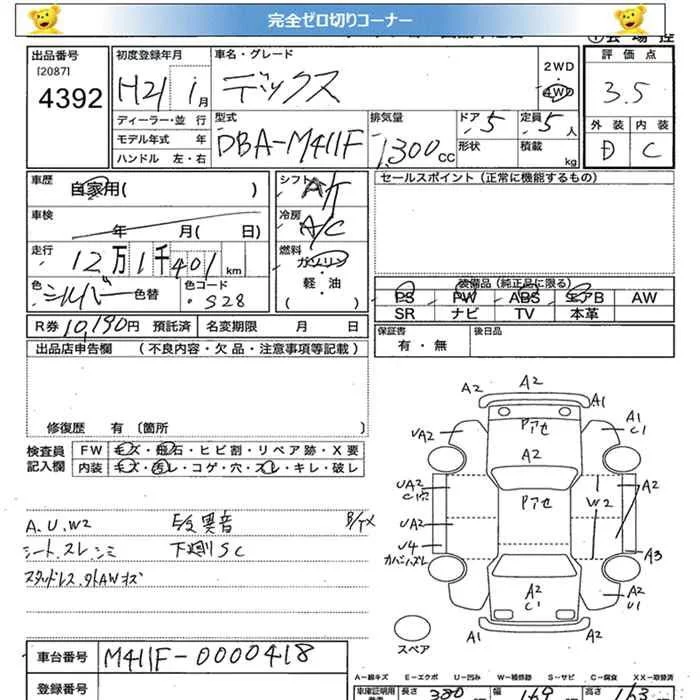 完全ゼロ切りコーナー
出品番号
[2087]
4392
初度登録年月
H21 1月
ディーラー・並 行
モデル年式 年
ハンドル 左・右
車名・グレード
デックス
2WD
4WD
型式
DBA-M411F
排気量
1,300cc
ドア 5
形状
定員 5人
積載 kg
評 価 点
3.5
外 装 内 装
D C
車歴 自家用( )
車検 年 月( 日)
走行 12万1千401km
色 シルバー 色替
色コード S28
シフト AT
冷房 A/C
燃料 ガソリン
軽・油
( )
セールスポイント(正常に機能するもの)
装備品(純正品に限る)
PS PW ABS エアB AW
SR ナビ TV 本革
保証書
有・無
後日品
R券 10,190円 預託済 名変期限 月 日
出品店申告欄 (不良内容・欠品・注意事項等記載)
修復歴 有〔箇所 〕
検査員
記入欄
FW キズ・飛石・ヒビ割・リペア跡・X要
内装 キズ・汚レ・コゲ・穴・スレ・キレ・破レ
A.U.W2
シート.スレ.シミ
スタッドレス.外AWキズ
異音
下廻りSC
A2
A2
A1
A1
C1
UA2
Pアセ
A2
UA2
Pアセ
W2
A2
UA2
U4
カバーハズレ
A3
A2
C1
A2
U1
A1
A2
スペア
車台番号 M411F-0000418
登録番号
A－線キズ E－エクボ U－凹み W－補修跡 S－サビ C－腐食 XX－取替済
車庫証明用
長さ 380 幅 169 高さ 163